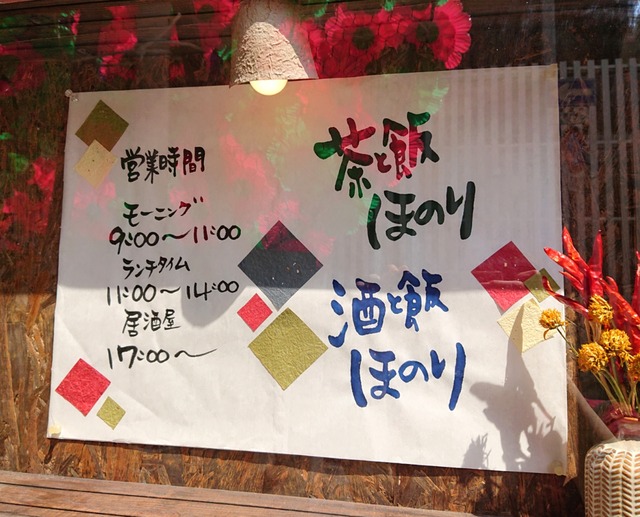 営業時間
モーニング
9:00〜11:00
ランチタイム
11:00〜14:00
居酒屋
17:00〜
茶と飯
ほのり
酒と飯
ほのり